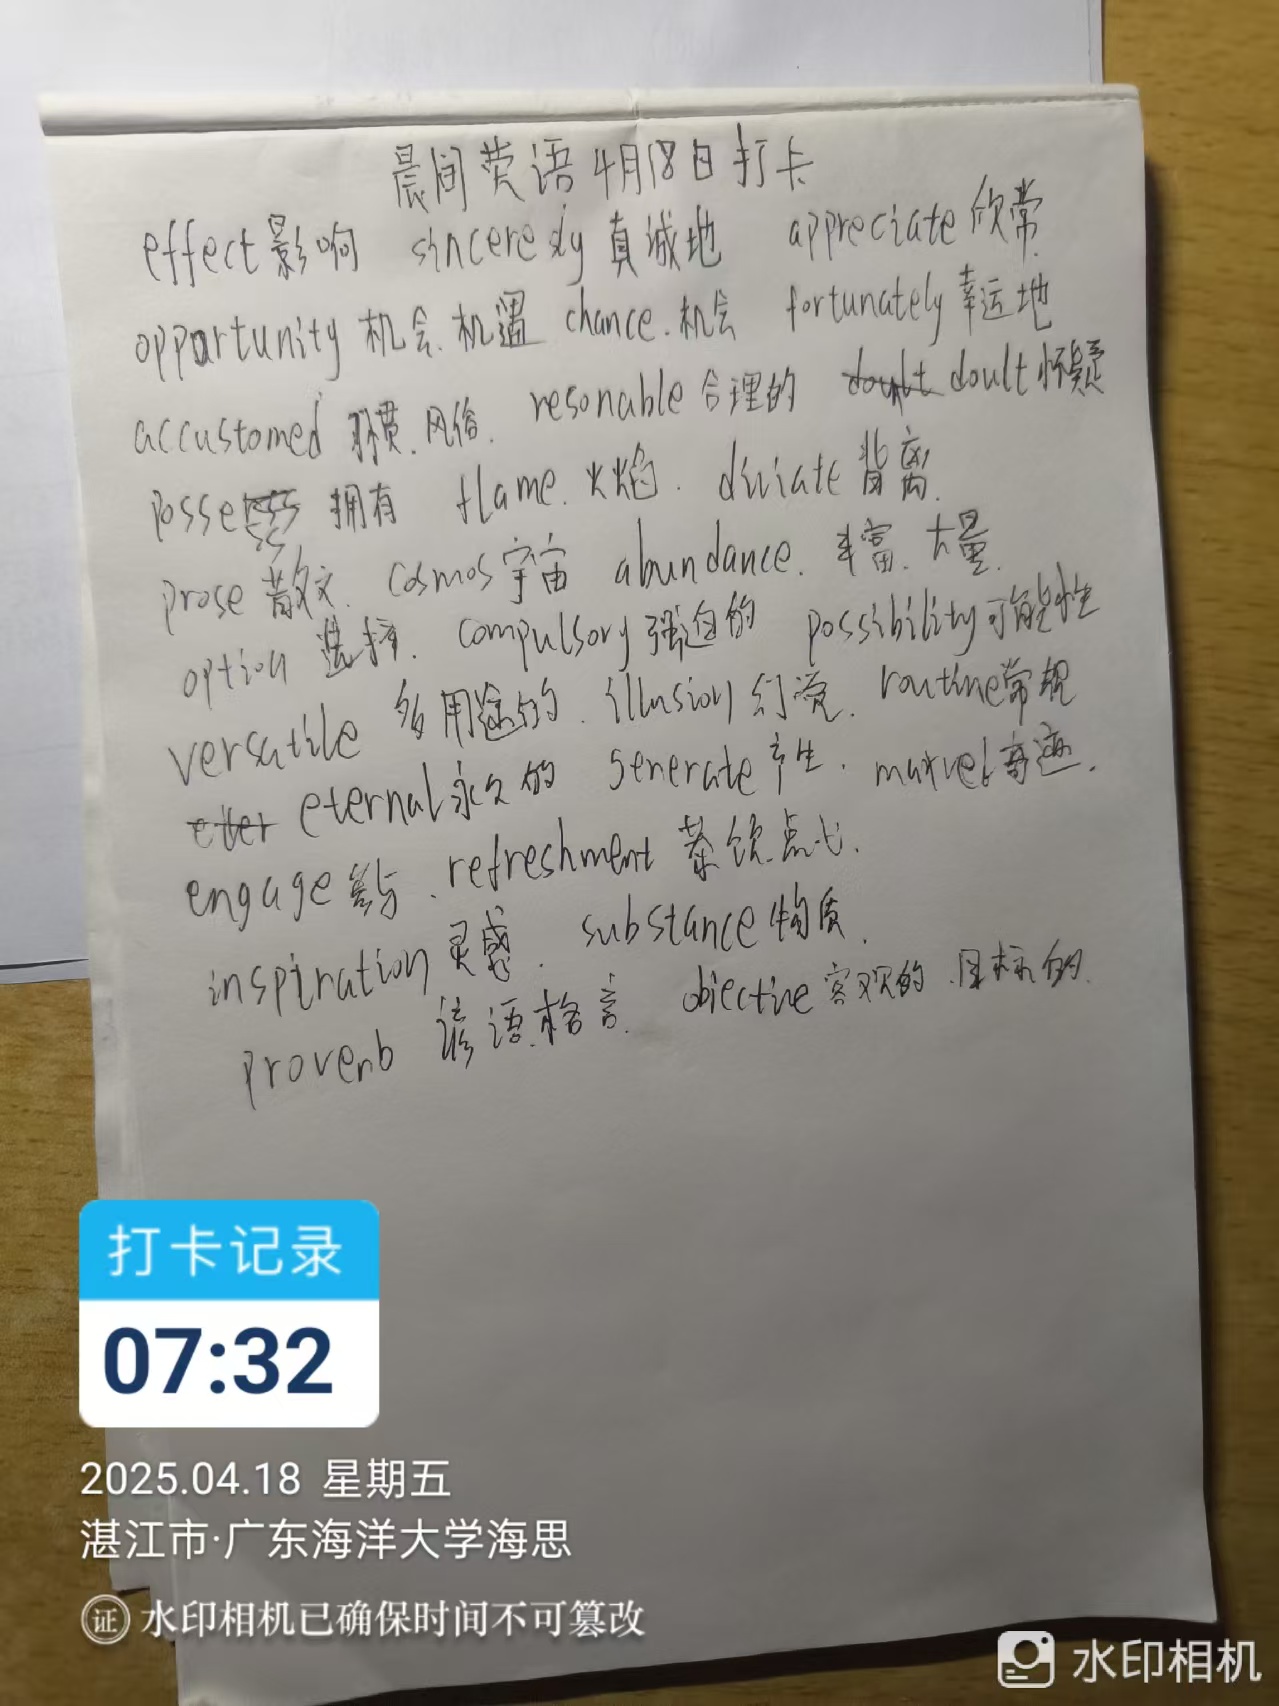 晨间英语4月18日打卡
effect影响 sincerely真诚地 appreciate欣常
opportunity 机会.机遇 chance.机会 fortunately幸运地
accustomed 习惯.风俗. resonable合理的 doult doult怀疑
possess 拥有 flame.火焰. diviate背离.
prose散文. cosmos宇宙 abundance.丰富.大量.
option 选择. compulsory强迫的 possibility可能性
versatile 多用途的. illusion幻觉. routine常规
etter eternal永久的 generate产生. marvel奇迹.
engage参与. refreshment 茶饮.点心.
inspiration灵感. substance物质.
proverb 谚语.格言. objective客观的.目标的.
打卡记录
07:32
2025.04.18 星期五
湛江市·广东海洋大学海思
证 水印相机已确保时间不可篡改
水印相机